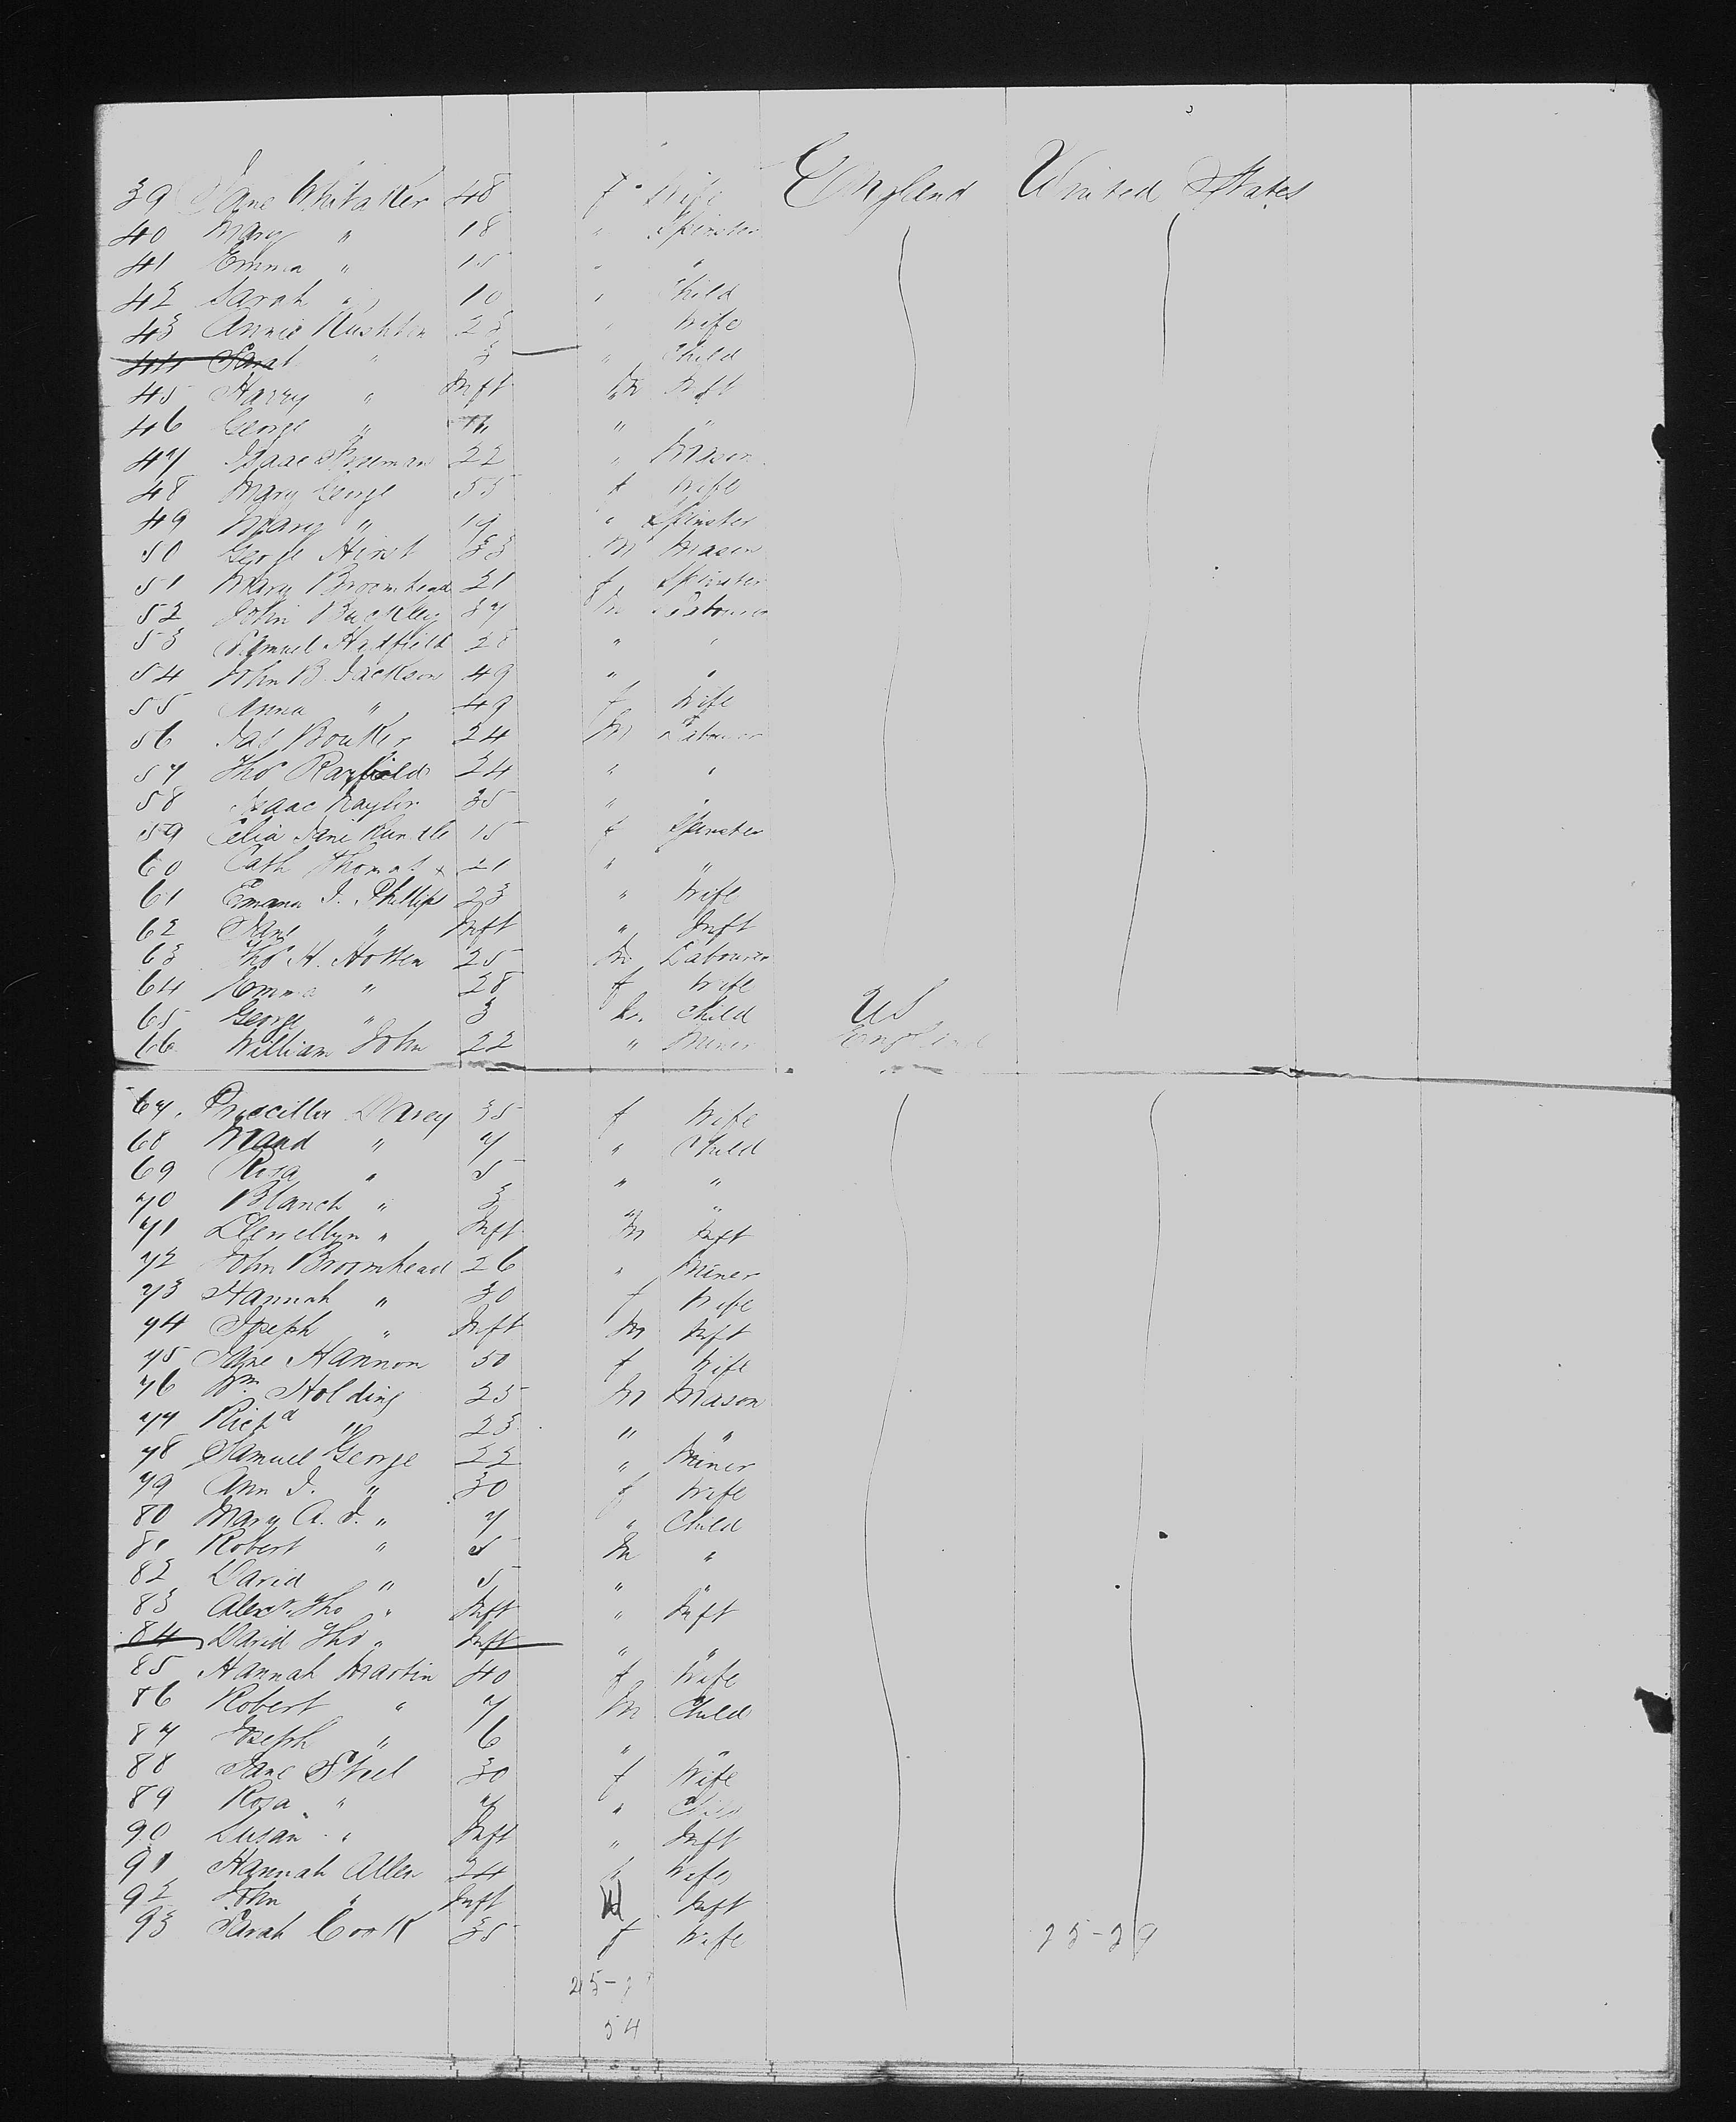 39 Jane Whitaker 48 f Wife England United States
40 Mary " 18 " Spinster
41 Emma " 15 " "
42 Sarah " 10 " Child
43 Annie Rushton 23 " Wife
44 Sarah " 3 " Child
45 Harry " Inft M Inft
46 George " " "
47 Isaac 22 " Mason
48 Mary George 55 f Wife
49 Mary " 19 " Spinster
50 George Hirst 33 M Mason
51 Mary Broomhead 21 f Spinster
52 John Buckley 37 M Labourer
53 Samuel Hatfield 28 " "
54 John B. Jackson 49 " "
55 Anna " 49 f Wife
56 Jas 24 M Labourer
57 Thos Rayfield 24 " "
58 Isaac Naylor 35 " "
59 Celia Jane Rundle 15 f Spinster
60 Cath Thomas x 21 " "
61 Emma J. Phillips 23 " Wife
62 Jane " Inft " Inft
63 Thos H. Hotten 25 M Labourer
64 Emma " 28 f Wife
65 George " 3 M. Child US
66 William John 22 " Miner England
67. Priscilla Davey 35 f Wife
68 Maud " 7 " Child
69 Rosa " 5 " "
70 Blanch " 3 " "
71 Llewellyn " Inft M Inft
72 John Broomhead 26 " Miner
73 Hannah " 30 f Wife
74 Joseph " Inft M Inft
75 Jane Hannon 50 f Wife
76 Wm Holding 25 M Mason
77 Richd " 23 " "
78 Samuel George 22 " Miner
79 Ann J. " 30 f Wife
80 Mary A. J. " 7 " Child
81 Robert " 5 M "
82 David " 5 " "
83 Alexr. Tho " Inft " Inft
84 David Tho " Inft " "
85 Hannah Martin 40 f Wife
86 Robert " 7 M Child
87 Joseph " 6 " "
88 Jane Steel 30 f Wife
89 Rosa " 7 " Child
90 Susan " Inft " Inft
91 Hannah Allen 24 f Wife
92 John " Inft M Inft
93 Sarah Cook 35 f Wife 25-29
54